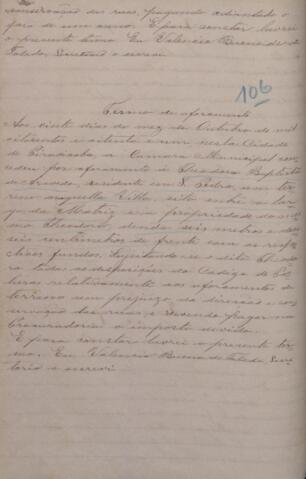 conservação das ruas, pagando adiantado o
foro de um anno. E para constar lavrei
o presente termo. Eu Valencio Bueno de
Toledo, Secretario o escrevi
106
Termo de aforamento
Aos vinte dias do mez de Outubro de mil
oitocentos e oitenta e um nesta Cidade
de Piracicaba, a Camara Municipal con
cedeu por aforamento a Theodoro Baptista
de residente em S. Pedro, um ter
reno naquella Villa, sito entre o lar
go da Matriz e a propriedade do
mesmo Theodoro, tendo seis metros e
seis centimetros de frente com os respe
ctivos fundos, sujeitando-se o dito Theodo
ro a todas as disposições do Codigo de Pos
turas relativamente aos aforamentos de
terrenos sem prejuizo da direcção e con
servação das ruas, e devendo pagar na
Procuradoria o imposto devido.
E para constar lavrei o presente ter
mo. Eu, Valencio Bueno de Toledo, Secre
tario o escrevi